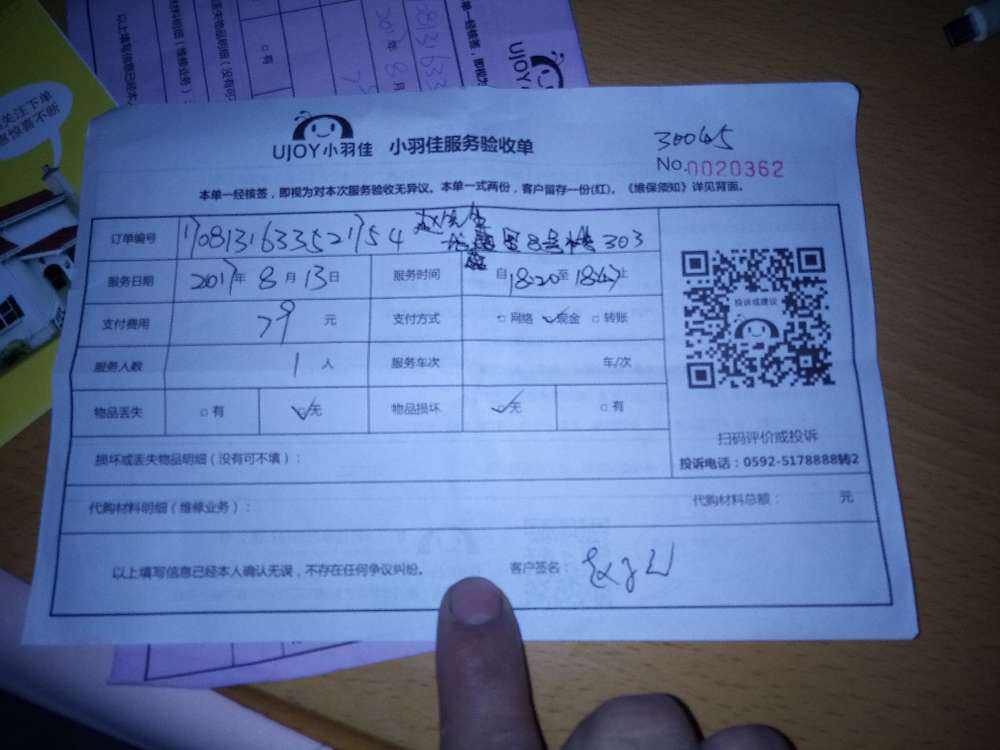 关注下单
惊喜不断
以上填写信息已经
材料明细(维修业务):
丢失物品明细(没有可
有
2017年8月
单一经核签,即视为
UJOY
UJOY小羽佳 小羽佳服务验收单
30045
No.0020362
本单一经核签,即视为对本次服务验收无异议。本单一式两份,客户留存一份(红)。《维保须知》详见背面。
订单编号 1708131633521754 赵先生
8号楼303
服务日期 2017年8月13日 服务时间 自18:20至18:47止
支付费用 79元 支付方式 □网络 ✓现金 □转账
服务人数 1人 服务车次 车/次
物品丢失 □有 ✓无 物品损坏 ✓无 □有
投诉或建议
扫码评价或投诉
投诉电话:0592-5178888转2
损坏或丢失物品明细(没有可不填):
代购材料明细(维修业务): 代购材料总额: 元
以上填写信息已经本人确认无误,不存在任何争议纠纷。 客户签名: